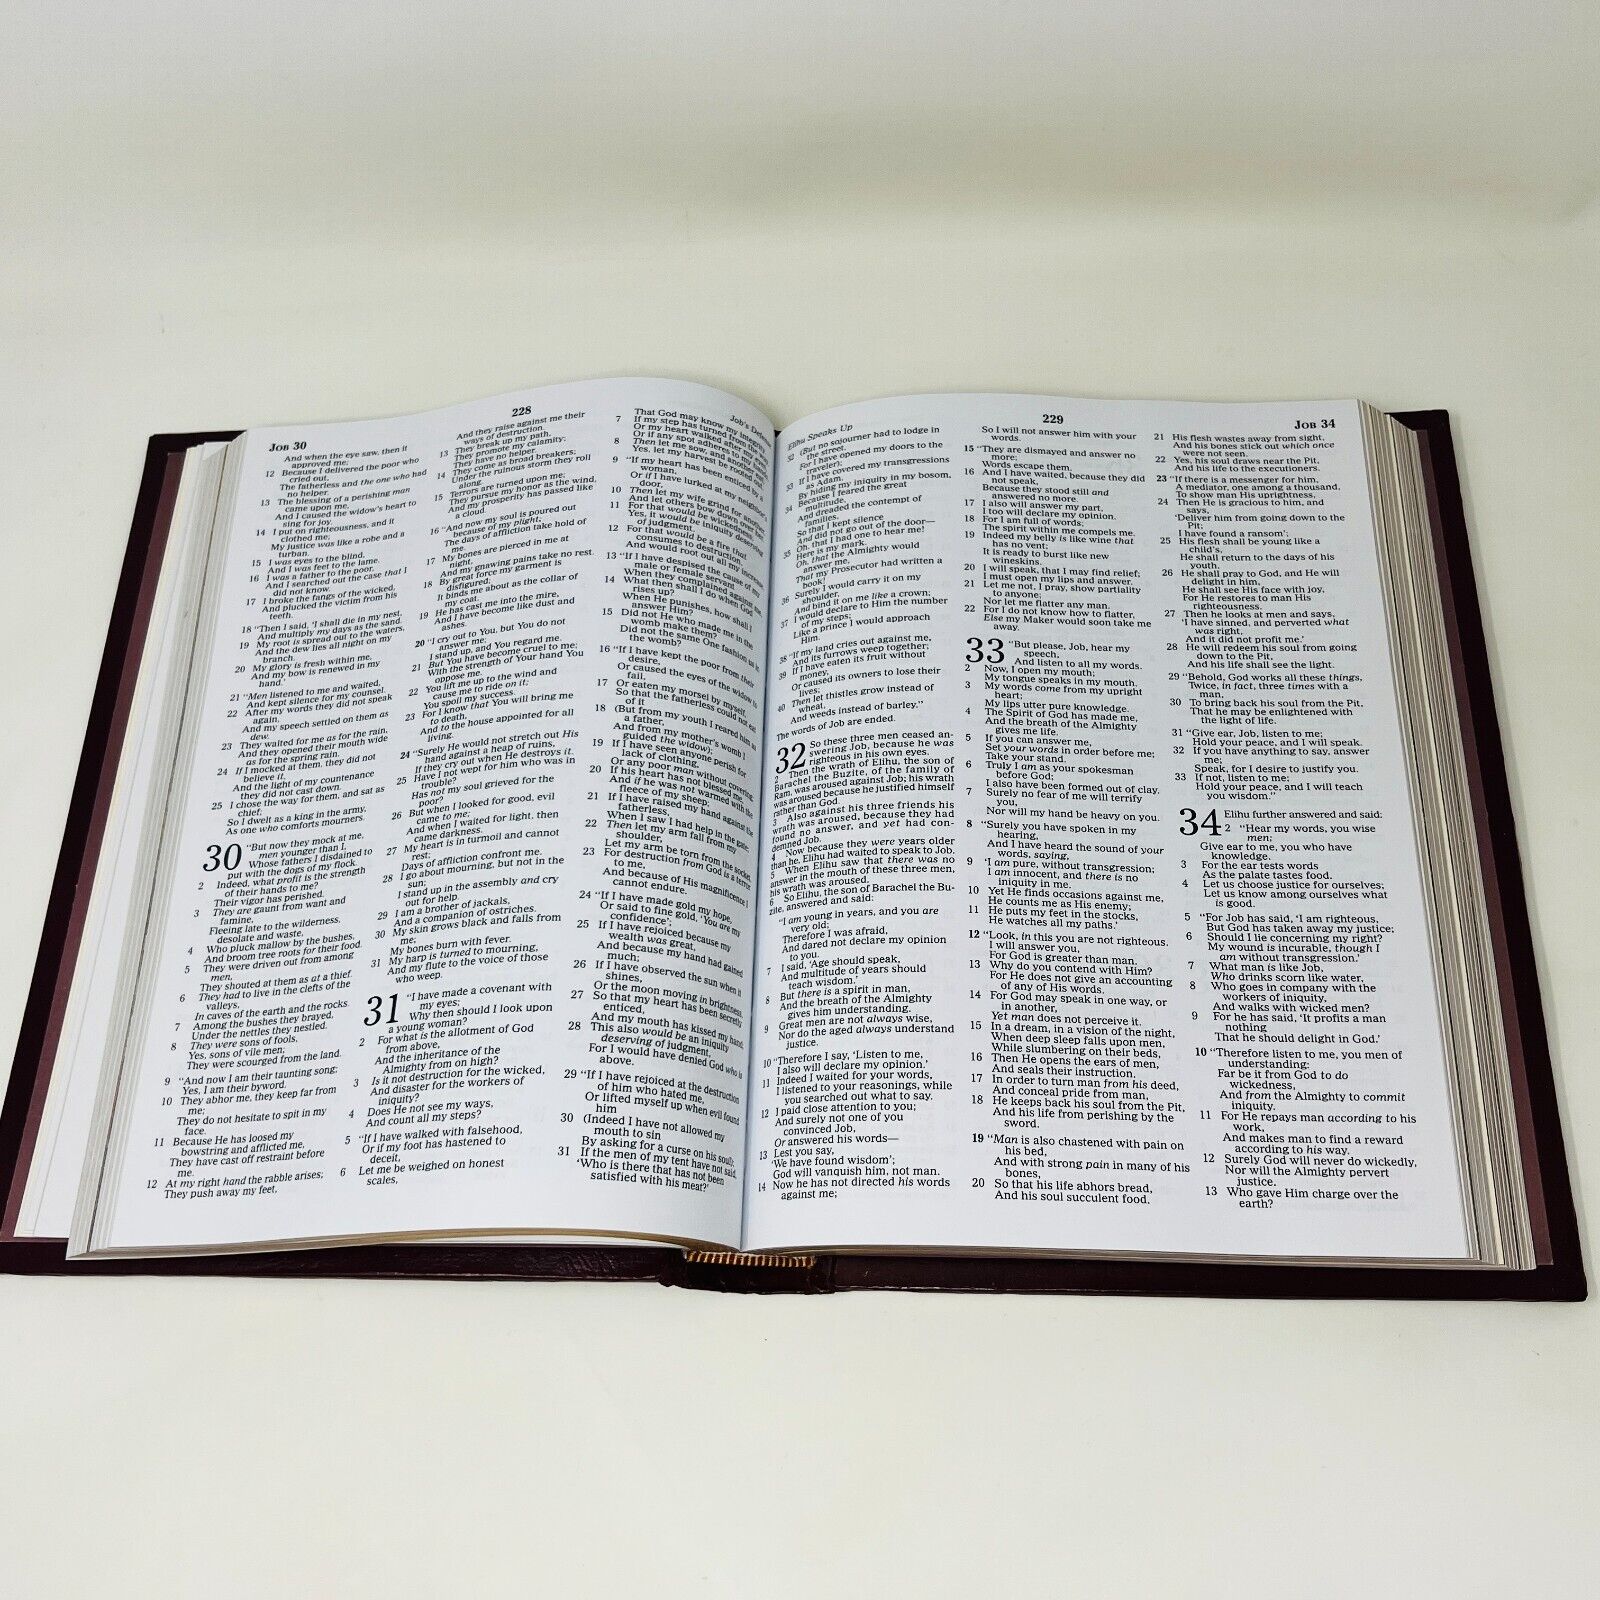 228
JOB 30
And when the eye saw, then it
approved me;
12 Because I delivered the poor who
cried out,
The fatherless and the one who had
no helper.
13 The blessing of a perishing man
came upon me,
And I caused the widow's heart to
sing for joy.
14 I put on righteousness, and it
clothed me;
My justice was like a robe and a
turban.
15 I was eyes to the blind,
And I was feet to the lame.
16 I was a father to the poor,
And I searched out the case that I
did not know.
17 I broke the fangs of the wicked,
And plucked the victim from his
teeth.
18 "Then I said, 'I shall die in my nest,
And multiply my days as the sand.
19 My root is spread out to the waters,
And the dew lies all night on my
branch.
20 My glory is fresh within me,
And my bow is renewed in my
hand.'
21 "Men listened to me and waited,
And kept silence for my counsel.
22 After my words they did not speak
again,
And my speech settled on them as
dew.
23 They waited for me as for the rain,
And they opened their mouth wide
as for the spring rain.
24 If I mocked at them, they did not
believe it,
And the light of my countenance
they did not cast down.
25 I chose the way for them, and sat as
chief;
So I dwelt as a king in the army,
As one who comforts mourners.
30 "But now they mock at me,
men younger than I,
Whose fathers I disdained to
put with the dogs of my flock.
2 Indeed, what profit is the strength
of their hands to me?
Their vigor has perished.
3 They are gaunt from want and
famine,
Fleeing late to the wilderness,
desolate and waste,
4 Who pluck mallow by the bushes,
And broom tree roots for their food.
5 They were driven out from among
men,
They shouted at them as at a thief.
6 They had to live in the clefts of the
valleys,
In caves of the earth and the rocks.
7 Among the bushes they brayed,
Under the nettles they nestled.
8 They were sons of fools,
Yes, sons of vile men;
They were scourged from the land.
9 "And now I am their taunting song;
Yes, I am their byword.
10 They abhor me, they keep far from
me;
They do not hesitate to spit in my
face.
11 Because He has loosed my
bowstring and afflicted me,
They have cast off restraint before
me.
12 At my right hand the rabble arises;
They push away my feet,
And they raise against me their
ways of destruction.
13 They break up my path,
They promote my calamity;
They have no helper.
14 They come as broad breakers;
Under the ruinous storm they roll
along.
15 Terrors are turned upon me;
They pursue my honor as the wind,
And my prosperity has passed like
a cloud.
16 "And now my soul is poured out
because of my plight;
The days of affliction take hold of
me.
17 My bones are pierced in me at
night,
And my gnawing pains take no rest.
18 By great force my garment is
disfigured;
It binds me about as the collar of
my coat.
19 He has cast me into the mire,
And I have become like dust and
ashes.
20 "I cry out to You, but You do not
answer me;
I stand up, and You regard me.
21 But You have become cruel to me;
With the strength of Your hand You
oppose me.
22 You lift me up to the wind and
cause me to ride on it;
You spoil my success.
23 For I know that You will bring me
to death,
And to the house appointed for all
living.
24 "Surely He would not stretch out His
hand against a heap of ruins,
If they cry out when He destroys it.
25 Have I not wept for him who was in
trouble?
Has not my soul grieved for the
poor?
26 But when I looked for good, evil
came to me;
And when I waited for light, then
came darkness.
27 My heart is in turmoil and cannot
rest;
Days of affliction confront me.
28 I go about mourning, but not in the
sun;
I stand up in the assembly and cry
out for help.
29 I am a brother of jackals,
And a companion of ostriches.
30 My skin grows black and falls from
me;
My bones burn with fever.
31 My harp is turned to mourning,
And my flute to the voice of those
who weep.
31 "I have made a covenant with
my eyes;
Why then should I look upon
a young woman?
2 For what is the allotment of God
from above,
And the inheritance of the
Almighty from on high?
3 Is it not destruction for the wicked,
And disaster for the workers of
iniquity?
4 Does He not see my ways,
And count all my steps?
5 "If I have walked with falsehood,
Or if my foot has hastened to
deceit,
6 Let me be weighed on honest
scales,
Job's Defense
That God may know my integrity.
7 If my step has turned from the way,
Or my heart walked after my eyes,
Or if any spot adheres to my hands,
8 Then let me sow, and another eat;
Yes, let my harvest be rooted out.
9 "If my heart has been enticed by a
woman,
Or if I have lurked at my neighbor's
door,
10 Then let my wife grind for another,
And let others bow down over her.
11 For that would be wickedness;
Yes, it would be iniquity deserving
of judgment.
12 For that would be a fire that
consumes to destruction,
And would root out all my increase.
13 "If I have despised the cause of my
male or female servant
When they complained against me,
14 What then shall I do when God
rises up?
When He punishes, how shall I
answer Him?
15 Did not He who made me in the
womb make them?
Did not the same One fashion us in
the womb?
16 "If I have kept the poor from their
desire,
Or caused the eyes of the widow to
fail,
17 Or eaten my morsel by myself,
So that the fatherless could not eat
of it
18 (But from my youth I reared him as
a father,
And from my mother's womb I
guided the widow);
19 If I have seen anyone perish for
lack of clothing,
Or any poor man without covering;
20 If his heart has not blessed me,
And if he was not warmed with the
fleece of my sheep;
21 If I have raised my hand against the
fatherless,
When I saw I had help in the gate;
22 Then let my arm fall from my
shoulder,
Let my arm be torn from the socket.
23 For destruction from God is a terror
to me,
And because of His magnificence I
cannot endure.
24 "If I have made gold my hope,
Or said to fine gold, 'You are my
confidence';
25 If I have rejoiced because my
wealth was great,
And because my hand had gained
much;
26 If I have observed the sun when it
shines,
Or the moon moving in brightness,
27 So that my heart has been secretly
enticed,
And my mouth has kissed my hand;
28 This also would be an iniquity
deserving of judgment,
For I would have denied God who is
above.
29 "If I have rejoiced at the destruction
of him who hated me,
Or lifted myself up when evil found
him
30 (Indeed I have not allowed my
mouth to sin
By asking for a curse on his soul);
31 If the men of my tent have not said,
'Who is there that has not been
satisfied with his meat?'
Elihu Speaks Up
229
JOB 34
32 (But no sojourner had to lodge in
the street,
For I have opened my doors to the
traveler);
33 If I have covered my transgressions
as Adam,
By hiding my iniquity in my bosom,
34 Because I feared the great
multitude,
And dreaded the contempt of
families,
So that I kept silence
And did not go out of the door—
35 Oh, that I had one to hear me!
Here is my mark.
Oh, that the Almighty would
answer me,
That my Prosecutor had written a
book!
36 Surely I would carry it on my
shoulder,
And bind it on me like a crown;
37 I would declare to Him the number
of my steps;
Like a prince I would approach
Him.
38 "If my land cries out against me,
And its furrows weep together;
39 If I have eaten its fruit without
money,
Or caused its owners to lose their
lives;
40 Then let thistles grow instead of
wheat,
And weeds instead of barley."
The words of Job are ended.
32 So these three men ceased an-
swering Job, because he was
righteous in his own eyes.
2 Then the wrath of Elihu, the son of
Barachel the Buzite, of the family of
Ram, was aroused against Job; his wrath
was aroused because he justified himself
rather than God.
3 Also against his three friends his
wrath was aroused, because they had
found no answer, and yet had con-
demned Job.
4 Now because they were years older
than he, Elihu had waited to speak to Job.
5 When Elihu saw that there was no
answer in the mouth of these three men,
his wrath was aroused.
6 So Elihu, the son of Barachel the Bu-
zite, answered and said:
"I am young in years, and you are
very old;
Therefore I was afraid,
And dared not declare my opinion
to you.
7 I said, 'Age should speak,
And multitude of years should
teach wisdom.'
8 But there is a spirit in man,
And the breath of the Almighty
gives him understanding.
9 Great men are not always wise,
Nor do the aged always understand
justice.
10 "Therefore I say, 'Listen to me,
I also will declare my opinion.'
11 Indeed I waited for your words,
I listened to your reasonings, while
you searched out what to say.
12 I paid close attention to you;
And surely not one of you
convinced Job,
Or answered his words—
13 Lest you say,
'We have found wisdom';
God will vanquish him, not man.
14 Now he has not directed his words
against me;
So I will not answer him with your
words.
15 "They are dismayed and answer no
more;
Words escape them.
16 And I have waited, because they did
not speak,
Because they stood still and
answered no more.
17 I also will answer my part,
I too will declare my opinion.
18 For I am full of words;
The spirit within me compels me.
19 Indeed my belly is like wine that
has no vent;
It is ready to burst like new
wineskins.
20 I will speak, that I may find relief;
I must open my lips and answer.
21 Let me not, I pray, show partiality
to anyone;
Nor let me flatter any man.
22 For I do not know how to flatter,
Else my Maker would soon take me
away.
33 "But please, Job, hear my
speech,
And listen to all my words.
2 Now, I open my mouth;
My tongue speaks in my mouth.
3 My words come from my upright
heart;
My lips utter pure knowledge.
4 The Spirit of God has made me,
And the breath of the Almighty
gives me life.
5 If you can answer me,
Set your words in order before me;
Take your stand.
6 Truly I am as your spokesman
before God;
I also have been formed out of clay.
7 Surely no fear of me will terrify
you,
Nor will my hand be heavy on you.
8 "Surely you have spoken in my
hearing,
And I have heard the sound of your
words, saying,
9 'I am pure, without transgression;
I am innocent, and there is no
iniquity in me.
10 Yet He finds occasions against me,
He counts me as His enemy;
11 He puts my feet in the stocks,
He watches all my paths.'
12 "Look, in this you are not righteous.
I will answer you,
For God is greater than man.
13 Why do you contend with Him?
For He does not give an accounting
of any of His words.
14 For God may speak in one way, or
in another,
Yet man does not perceive it.
15 In a dream, in a vision of the night,
When deep sleep falls upon men,
While slumbering on their beds,
16 Then He opens the ears of men,
And seals their instruction.
17 In order to turn man from his deed,
And conceal pride from man,
18 He keeps back his soul from the Pit,
And his life from perishing by the
sword.
19 "Man is also chastened with pain on
his bed,
And with strong pain in many of his
bones,
20 So that his life abhors bread,
And his soul succulent food.
21 His flesh wastes away from sight,
And his bones stick out which once
were not seen.
22 Yes, his soul draws near the Pit,
And his life to the executioners.
23 "If there is a messenger for him,
A mediator, one among a thousand,
To show man His uprightness,
24 Then He is gracious to him, and
says,
'Deliver him from going down to the
Pit;
I have found a ransom';
25 His flesh shall be young like a
child's,
He shall return to the days of his
youth.
26 He shall pray to God, and He will
delight in him,
He shall see His face with joy,
For He restores to man His
righteousness.
27 Then he looks at men and says,
'I have sinned, and perverted what
was right,
And it did not profit me.'
28 He will redeem his soul from going
down to the Pit,
And his life shall see the light.
29 "Behold, God works all these things,
Twice, in fact, three times with a
man,
30 To bring back his soul from the Pit,
That he may be enlightened with
the light of life.
31 "Give ear, Job, listen to me;
Hold your peace, and I will speak.
32 If you have anything to say, answer
me;
Speak, for I desire to justify you.
33 If not, listen to me;
Hold your peace, and I will teach
you wisdom."
34 Elihu further answered and said:
2 "Hear my words, you wise
men;
Give ear to me, you who have
knowledge.
3 For the ear tests words
As the palate tastes food.
4 Let us choose justice for ourselves;
Let us know among ourselves what
is good.
5 "For Job has said, 'I am righteous,
But God has taken away my justice;
6 Should I lie concerning my right?
My wound is incurable, though I
am without transgression.'
7 What man is like Job,
Who drinks scorn like water,
8 Who goes in company with the
workers of iniquity,
And walks with wicked men?
9 For he has said, 'It profits a man
nothing
That he should delight in God.'
10 "Therefore listen to me, you men of
understanding:
Far be it from God to do
wickedness,
And from the Almighty to commit
iniquity.
11 For He repays man according to his
work,
And makes man to find a reward
according to his way.
12 Surely God will never do wickedly,
Nor will the Almighty pervert
justice.
13 Who gave Him charge over the
earth?